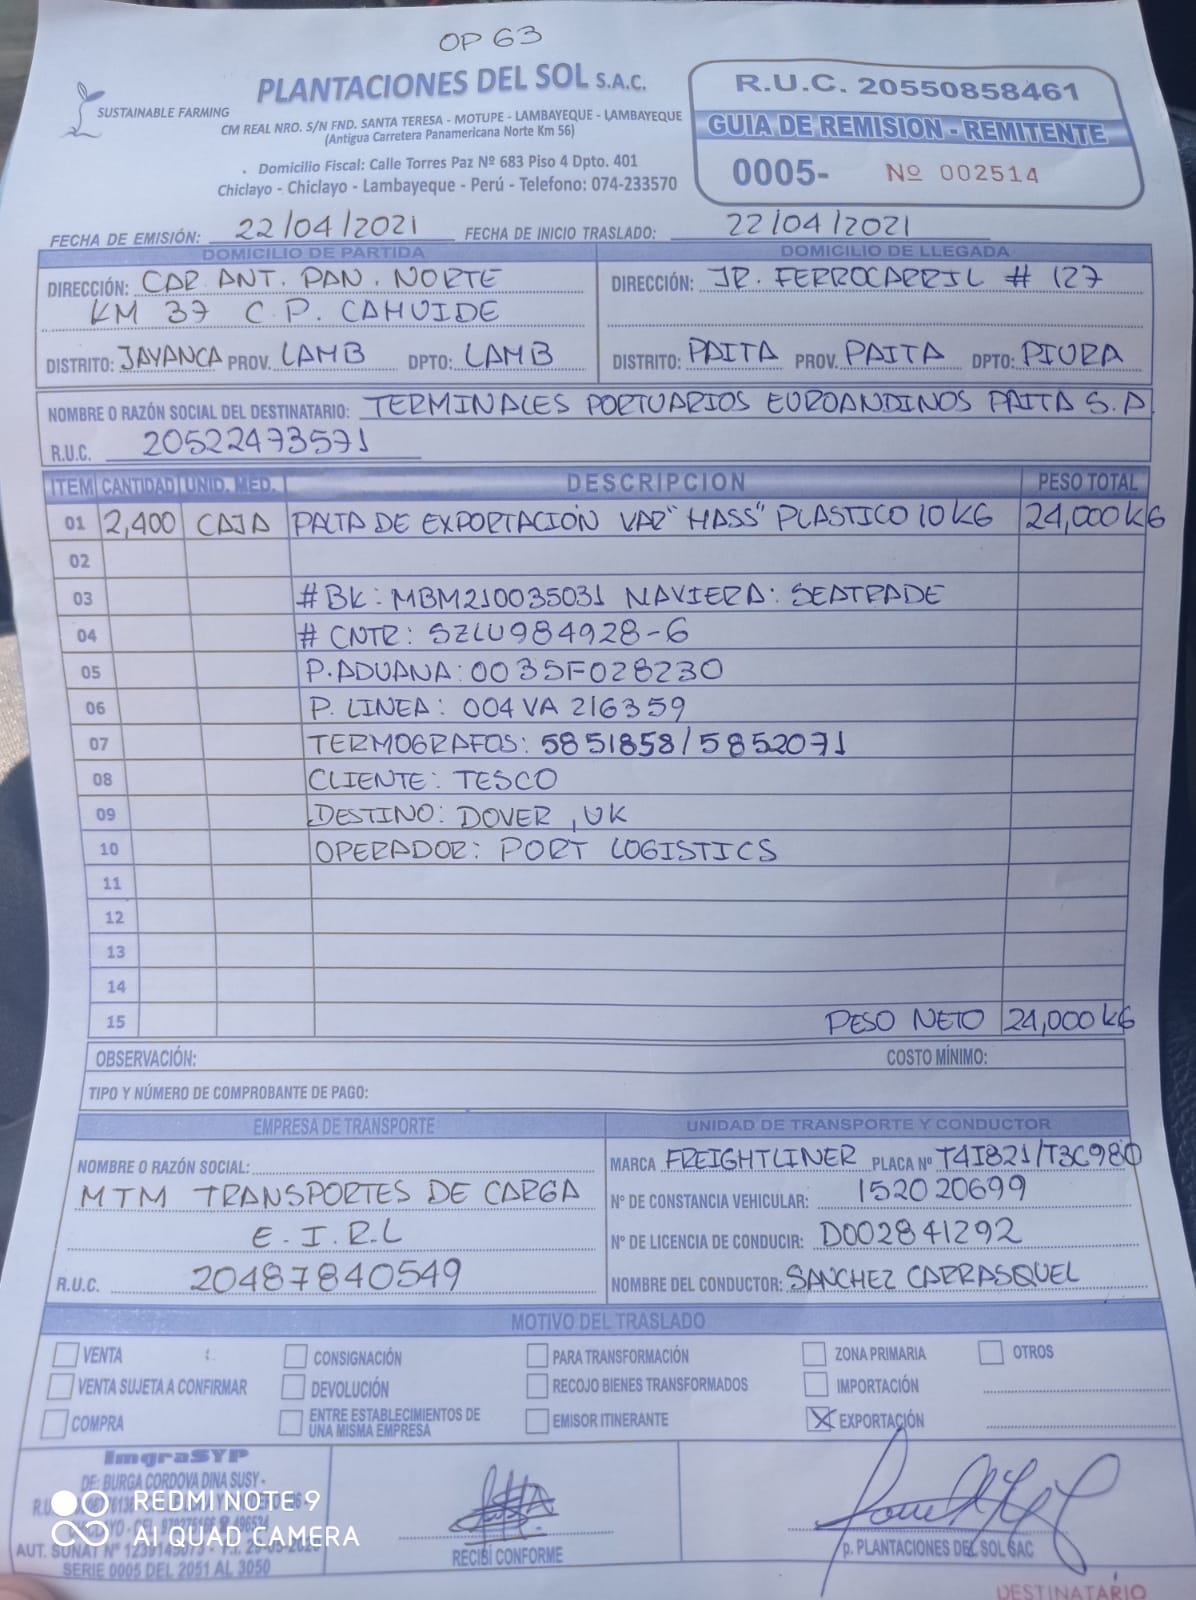 OP 63
SUSTAINABLE FARMING
PLANTACIONES DEL SOL S.A.C.
CM REAL NRO. S/N FND. SANTA TERESA - MOTUPE - LAMBAYEQUE - LAMBAYEQUE
(Antigua Carretera Panamericana Norte Km 56)
Domicilio Fiscal: Calle Torres Paz Nº 683 Piso 4 Dpto. 401
Chiclayo - Chiclayo - Lambayeque - Perú - Telefono: 074-233570
R.U.C. 20550858461
GUIA DE REMISION - REMITENTE
0005- Nº 002514
FECHA DE EMISIÓN: 22/04/2021 FECHA DE INICIO TRASLADO: 22/04/2021
DOMICILIO DE PARTIDA
DIRECCIÓN: CAR. ANT. PAN. NORTE
KM 37 C.P. CAHUIDE
DISTRITO: JAYANCA PROV. LAMB DPTO: LAMB
DOMICILIO DE LLEGADA
DIRECCIÓN: JR. FERROCARRIL # 127
DISTRITO: PAITA PROV. PAITA DPTO: PIURA
NOMBRE O RAZÓN SOCIAL DEL DESTINATARIO: TERMINALES PORTUARIOS EUROANDINOS PAITA S.A
R.U.C. 20522473571
ITEM CANTIDAD UNID. MED. DESCRIPCION PESO TOTAL
01 2,400 CAJA PALTA DE EXPORTACIÓN VAR "HASS" PLASTICO 10 KG 24,000 KG
02
03 # BK: MBM210035031 NAVIERA: SEATRADE
04 # CNTR: SZLU984928-6
05 P. ADUANA: 0035F028230
06 P. LINEA: 004VA 216359
07 TERMOGRAFOS: 5851858/5852071
08 CLIENTE: TESCO
09 DESTINO: DOVER, UK
10 OPERADOR: PORT LOGISTICS
11
12
13
14
15 PESO NETO 24,000 KG
OBSERVACIÓN: COSTO MÍNIMO:
TIPO Y NÚMERO DE COMPROBANTE DE PAGO:
EMPRESA DE TRANSPORTE
NOMBRE O RAZÓN SOCIAL:
MTM TRANSPORTES DE CARGA
E.I.R.L
R.U.C. 20487840549
UNIDAD DE TRANSPORTE Y CONDUCTOR
MARCA FREIGHTLINER PLACA Nº T4I821/T3C980
Nº DE CONSTANCIA VEHICULAR: 152020699
Nº DE LICENCIA DE CONDUCIR: D002841292
NOMBRE DEL CONDUCTOR: SANCHEZ CARRASQUEL
MOTIVO DEL TRASLADO
VENTA CONSIGNACIÓN PARA TRANSFORMACIÓN ZONA PRIMARIA OTROS
VENTA SUJETA A CONFIRMAR DEVOLUCIÓN RECOJO BIENES TRANSFORMADOS IMPORTACIÓN
COMPRA ENTRE ESTABLECIMIENTOS DE UNA MISMA EMPRESA EMISOR ITINERANTE X EXPORTACIÓN
ImgraSYP
DE: BURGA CORDOVA DINA SUSY -
REDMI NOTE 9
AI QUAD CAMERA
AUT. SUNAT Nº
SERIE 0005 DEL 2051 AL 3050
RECIBÍ CONFORME
p. PLANTACIONES DEL SOL SAC
DESTINATARIO